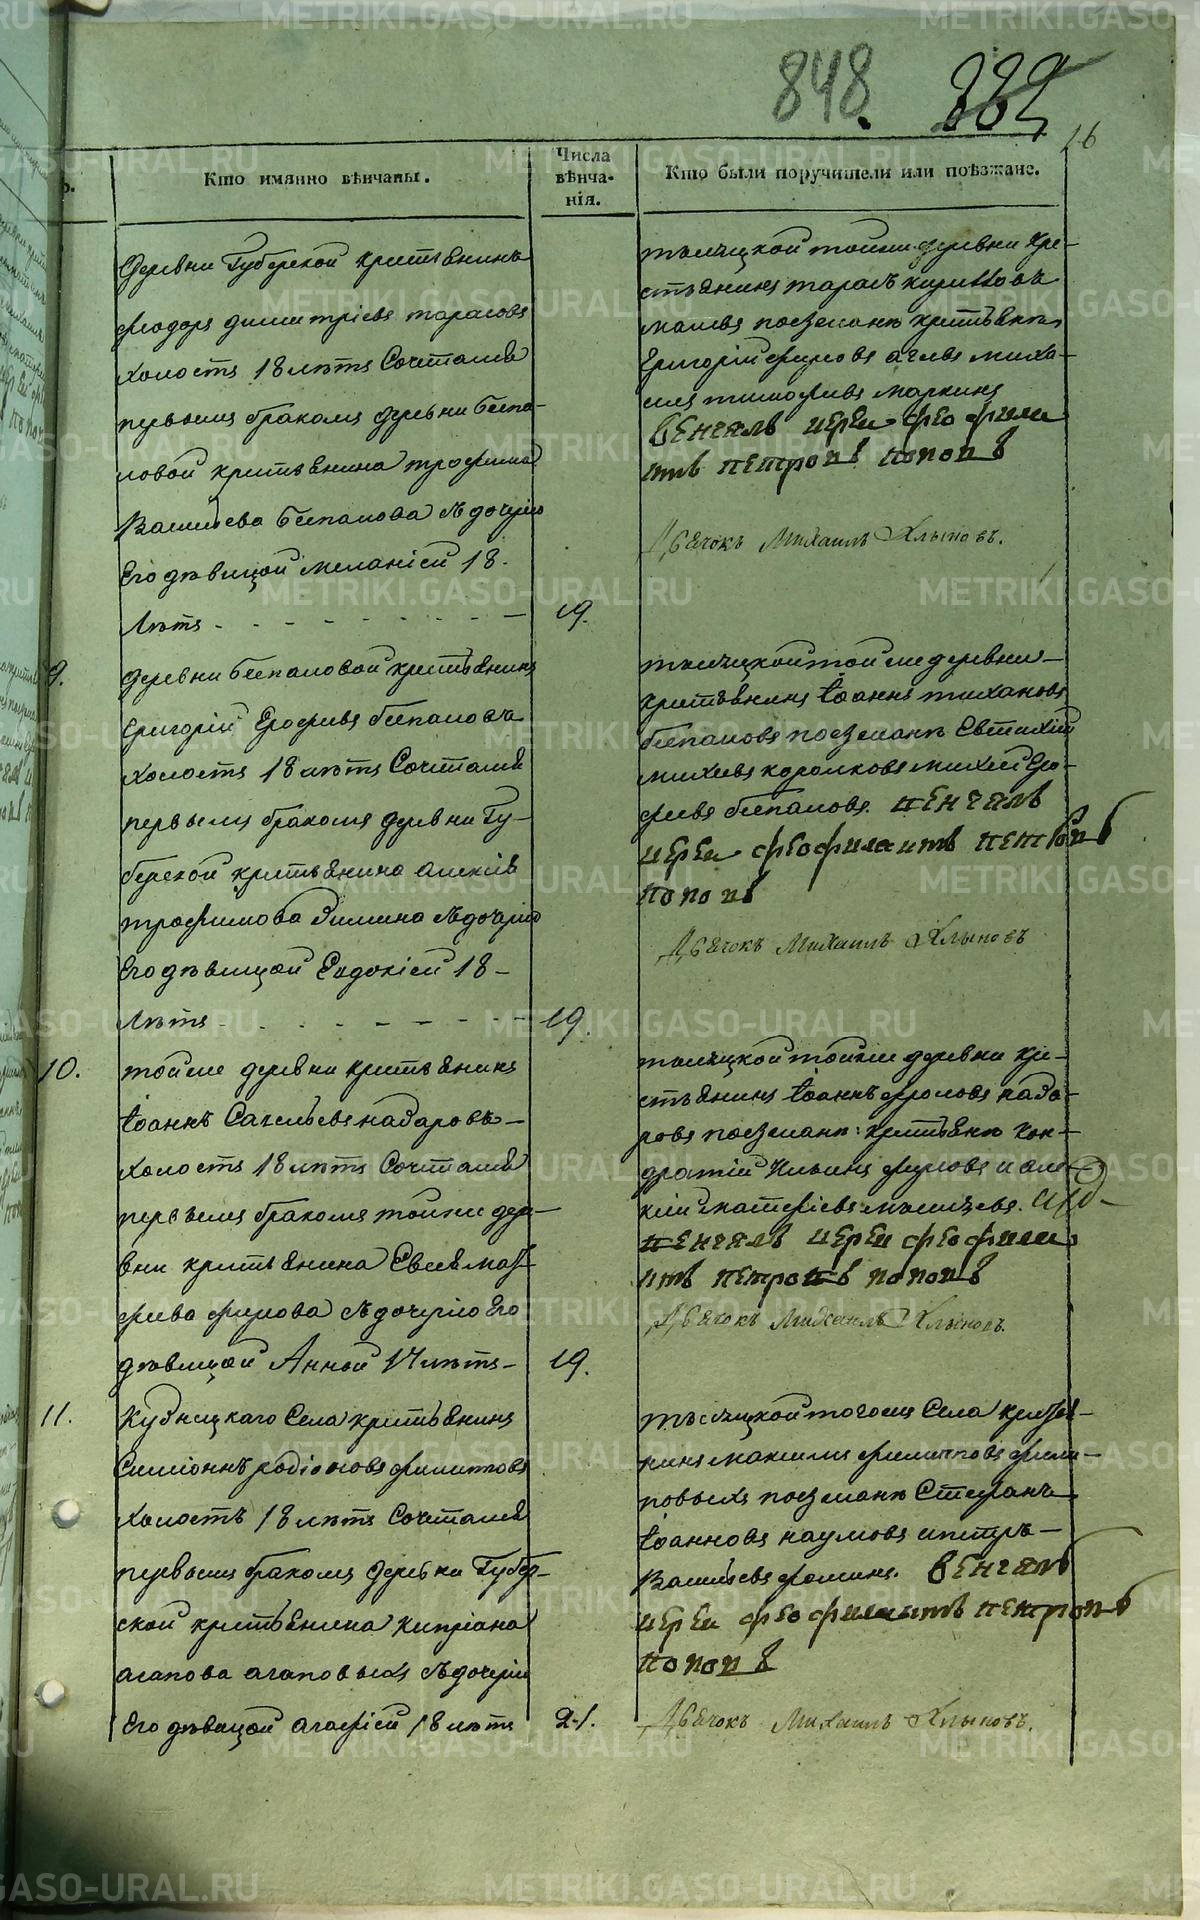 848.
16
Кто имянно вѣнчаны.
Числа
вѣнча-
нія.
Кто были поручители или поѣзжане.
Деревни Губерской крестьянинъ
феодоръ димитріевъ тарасовъ
холостъ 18 лѣтъ Сочетался
первымъ бракомъ деревни беспа-
ловой крестьянина трофима
Васильева беспалова съ дочерью
Его дѣвицой меланіей 18-
Лѣтъ - - - - - - - -
19.
тысяцкой тойже деревни кре-
стьянинъ тарасъ
поезжанъ крестьянъ
Григорій фирсовъ миха-
илъ тимофеевъ маркинъ
венчалъ иереи феофила
ктъ петровъ поповъ
Дьячокъ Михаилъ Хлыновъ.
9.
деревни беспаловой крестьянинъ
Григорій Ерофеевъ беспаловъ
холостъ 18 лѣтъ Сочетался
первымъ бракомъ деревни Гу-
берской крестьянина алексія
трофимова Зимина съ дочерью
Его дѣвицой Евдокіей 18-
Лѣтъ - - - - - - - -
19.
тысяцкой той же деревни-
крестьянинъ Іоаннъ тихановъ
беспаловъ поезжанъ Евтихій
михеевъ королковъ михей Еро-
феевъ беспаловъ. венчалъ
иереи феофилактъ петровъ
поповъ
Дьячокъ Михаилъ Хлыновъ
10.
тойже деревни крестьянинъ
Іоаннъ Савельевъ назаровъ-
холостъ 18 лѣтъ Сочетался
первымъ бракомъ тойже дере-
вни крестьянина Евсея
фирсова съ дочерью Его
дѣвицой Анной 17 лѣтъ-
19.
тысяцкой тойже деревни кре-
стьянинъ Іоаннъ фроловъ наза-
ровъ поезжанъ: крестьянъ Кон-
дратій Ильинъ фирсовъ и але-
ксій матфіевъ
венчалъ иереи феофила
ктъ петровъ поповъ
Дьячокъ Михаилъ Хлыновъ.
11.
Кузнецкаго Села крестьянинъ
Симіоннъ родіоновъ филиповъ
холостъ 18 лѣтъ Сочетался
первымъ бракомъ деревни Губер-
ской крестьянина кипріана
агапова агаповыхъ съ дочерью
Его дѣвицой агафіей 18 лѣтъ
21.
тысяцкой тогожъ Села крестья-
нинъ максимъ филиповъ фили-
повыхъ поезжанъ Стефанъ
Іоанновъ наумовъ ипетръ-
Васильевъ фоминъ. венчалъ
иереи феофилактъ петровъ
поповъ
Дьячокъ Михаилъ Хлыновъ.
METRIKI.GASO-URAL.RU